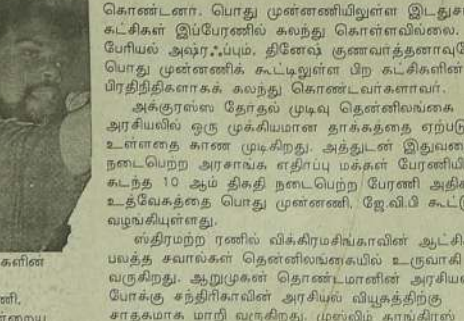 கொண்டனர். பொது முன்னணியிலுள்ள இடதுசா
கட்சிகள் இப்பேரணில் கலந்து கொள்ளவில்லை.
பேரியல் அஷ்ரஃப்பும், தினேஷ் குணவர்த்தனாவுமே
பொது முன்னணிக் கூட்டிலுள்ள பிற கட்சிகளின்
பிரதிநிதிகளாகக் கலந்து கொண்டவர்களாவர்.
அக்குரஸ்ஸ தேர்தல் முடிவு தென்னிலங்கை
அரசியலில் ஒரு முக்கியமான தாக்கத்தை ஏற்படு
உள்ளதை காண முடிகிறது. அத்துடன் இதுவரை
நடைபெற்ற அரசாங்க எதிர்ப்பு மக்கள் பேரணியி
கடந்த 10 ஆம் திகதி நடைபெற்ற பேரணி அதிக
உத்வேகத்தை பொது முன்னணி, ஜே.வி.பி கூட்டு
வழங்கியுள்ளது.
ஸ்திரமற்ற ரணில் விக்கிரமசிங்காவின் ஆட்சி
பலத்த சவால்கள் தென்னிலங்கையில் உருவாகி
வருகிறது. ஆறுமுகன் தொண்டமானின் அரசியல்
போக்கு சந்திரிகாவின் அரசியல் வியூகத்திற்கு
சாதகமாக மாறி வருகிறது. முஸ்லிம் காங்கிரஸ்
களின்
ணி,
ன்றைய